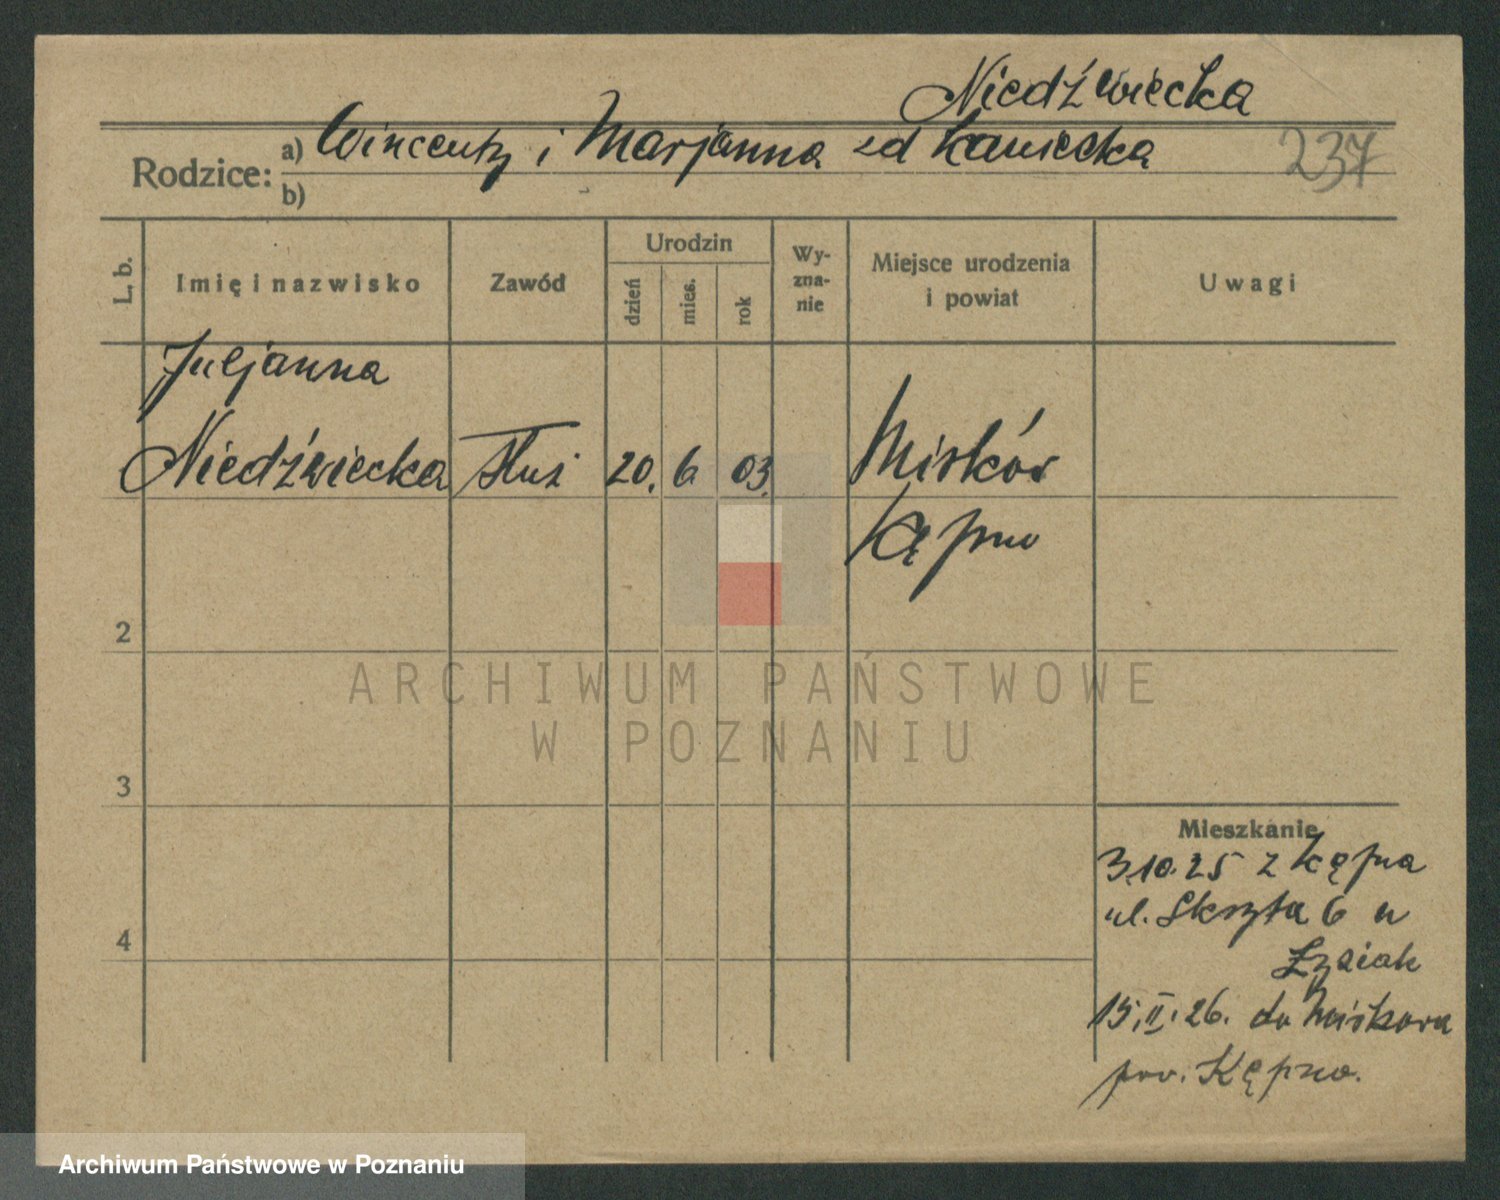 Niedźwiecka
Rodzice: a) Wincenty i Marjanna zd Kaniecka
b)
237
L. b.
Imię i nazwisko
Zawód
Urodzin
dzień
mies.
rok
Wy-
zna-
nie
Miejsce urodzenia
i powiat
Uwagi
Juljanna
Niedźwiecka służ 20. 6 03. Mirków
Kępno
2
3
4
ARCHIWUM PAŃSTWOWE
W POZNANIU
Mieszkanie
3.10.25 z Kępna
ul. 6 u
15.II.26. do Mirkowa
pow. Kępno.
Archiwum Państwowe w Poznaniu